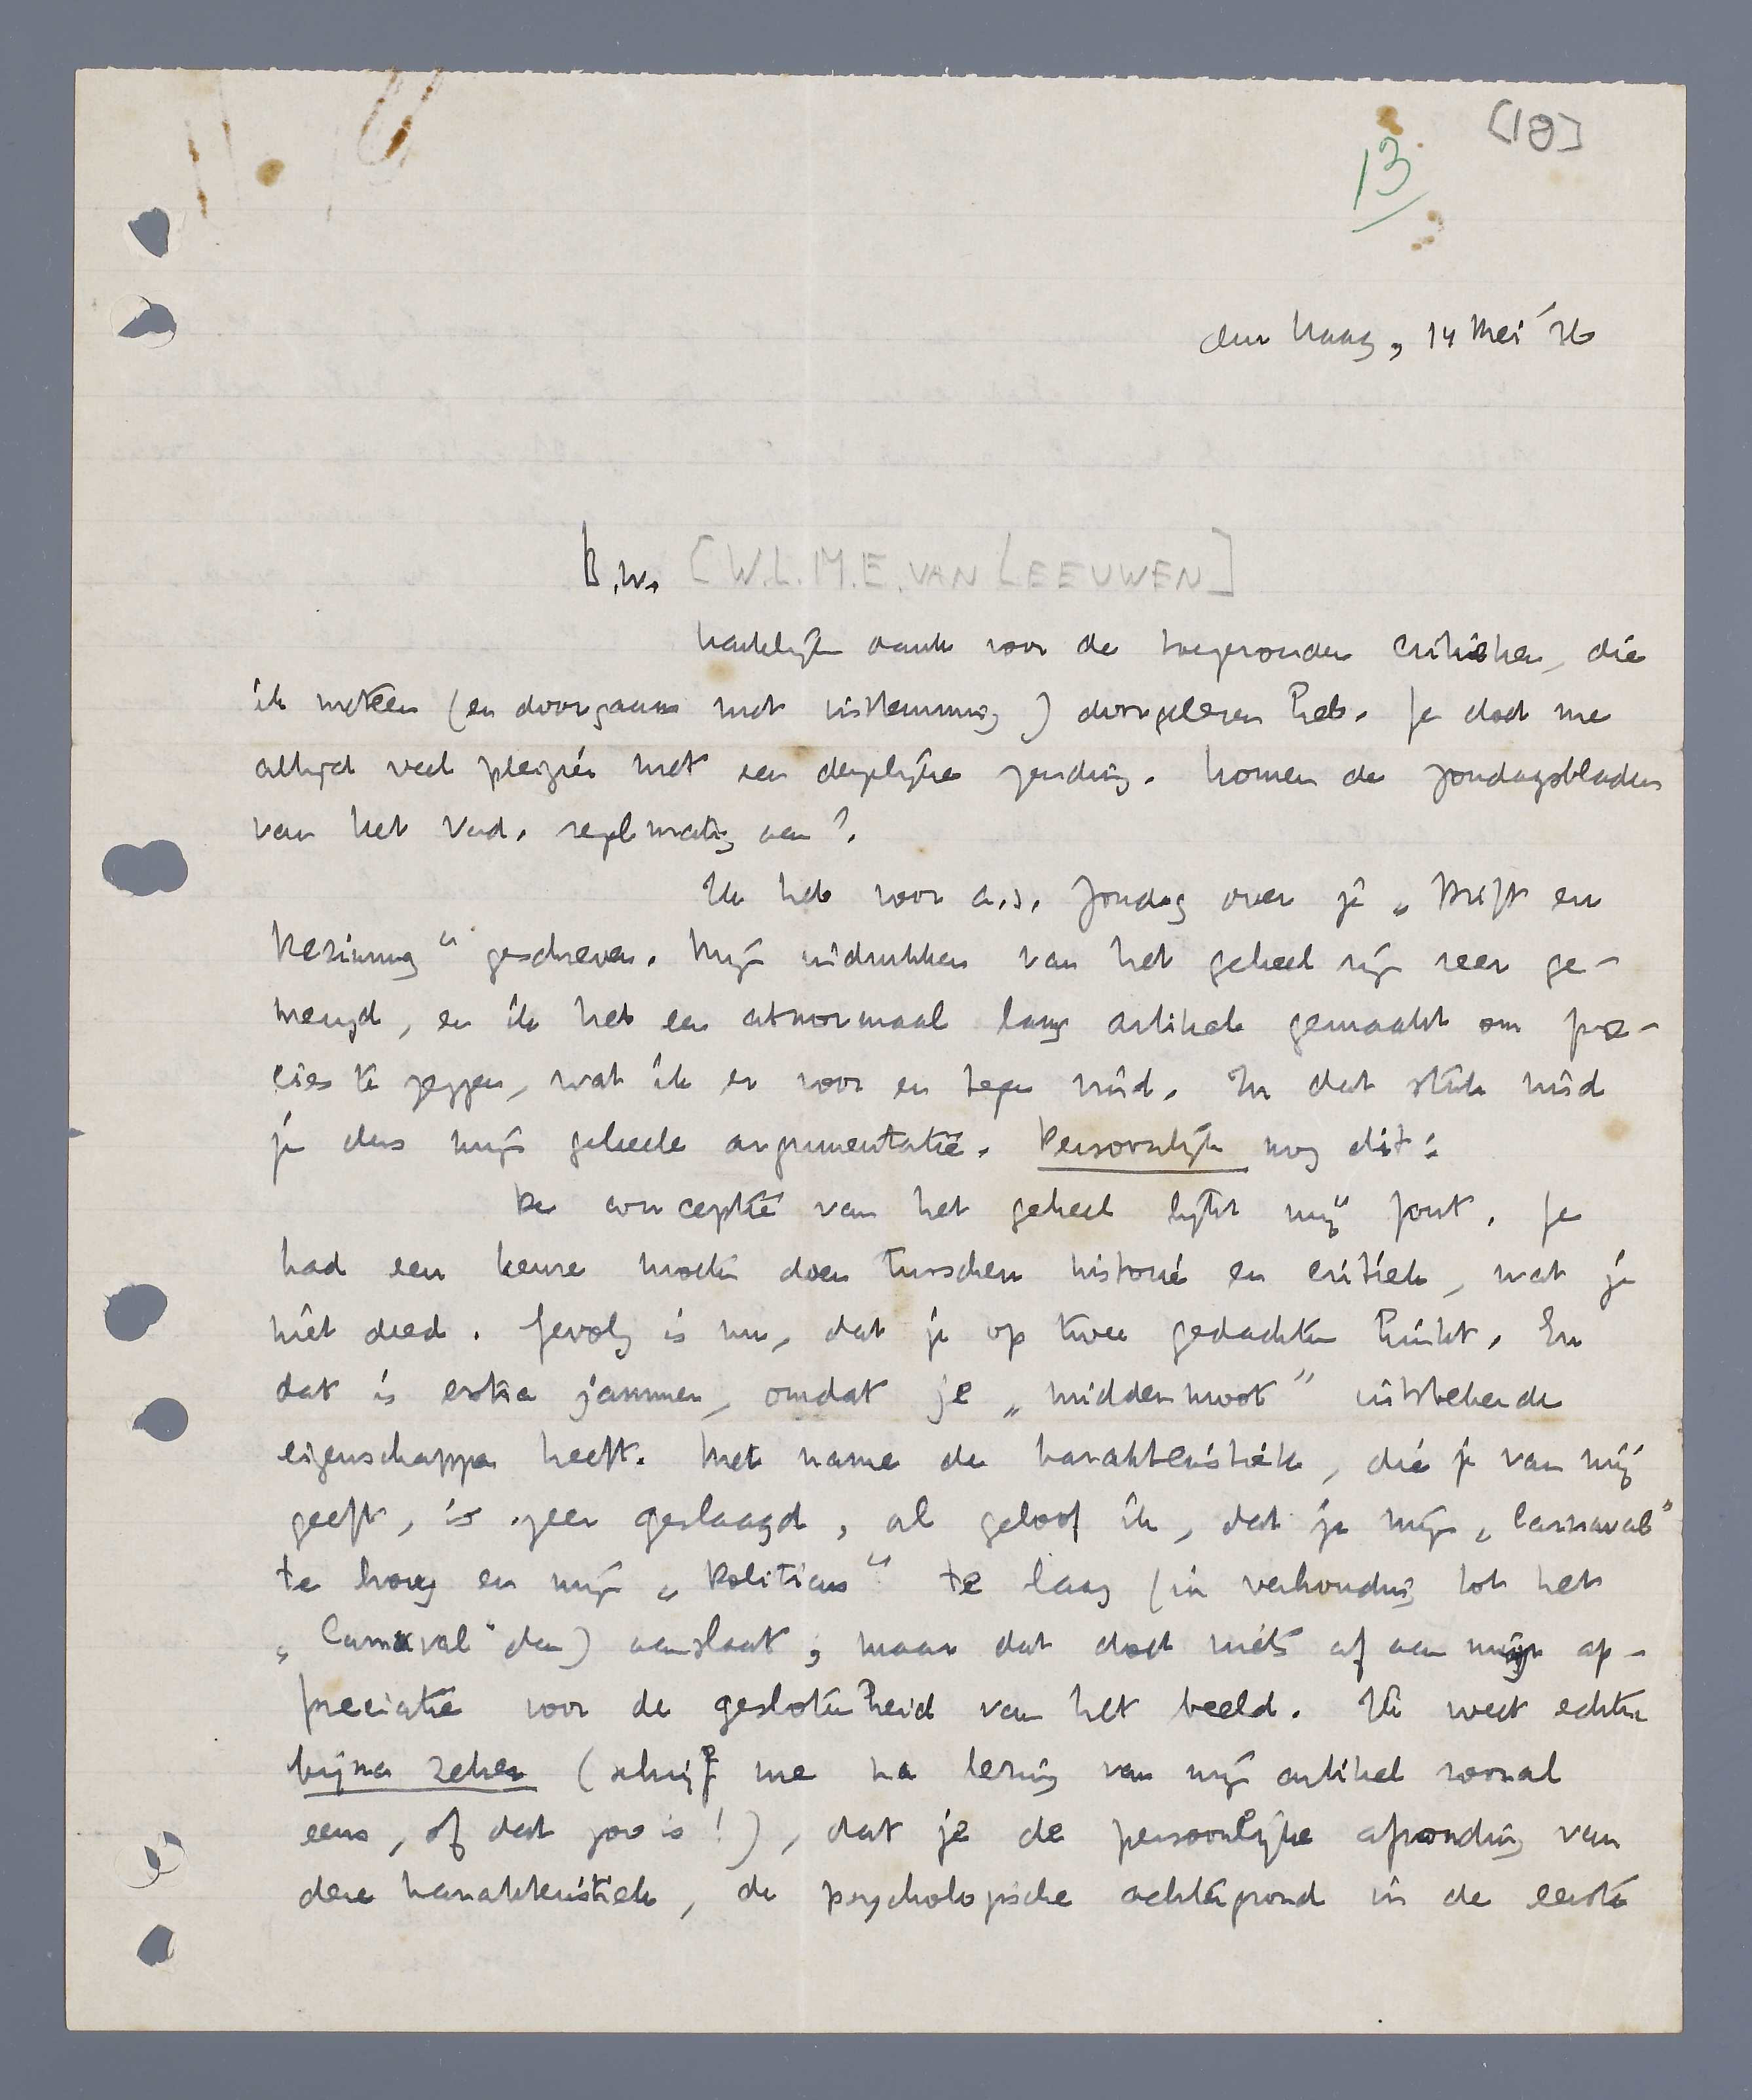 [18]
13
den Haag, 14 Mei '36
B.W. [W.L.M.E. VAN LEEUWEN]
hartelijk dank voor de toegezonden critieken, die
ik meteen (en doorgaans met instemming) doorgelezen heb. Je doet me
altijd veel plezier met een dergelijke zending. Komen de zondagsbladen
van het Vad. regelmatig aan?
Ik heb voor a.s. Zondag over je „Drift en
Bezinning" geschreven. Mijn indrukken van het geheel zijn zeer ge-
mengd, en ik heb een abnormaal lang artikel gemaakt om pre-
cies te zeggen, wat ik er voor en tegen vind. In dat stuk vind
je dus mijn geheele argumentatie. Persoonlijk nog dit:
De conceptie van het geheel lijkt mij fout. Je
had een keuze moeten doen tusschen historie en critiek, wat je
niet deed. Gevolg is nu, dat je op twee gedachten hinkt. En
dat is extra jammer, omdat je „middenmoot" uitstekende
eigenschappen heeft. Met name de karakteristiek, die je van mij
geeft, is zeer geslaagd, al geloof ik, dat je mijn „Carnaval"
te hoog en mijn „Politicus" te laag (in verhouding tot het
„Carnaval" dan) aanslaat; maar dat doet niets af aan mijn ap-
preciatie voor de geslotenheid van het beeld. Ik weet echter
bijna zeker (schrijf me na lezing van mijn artikel vooral
eens, of dat zoo is!), dat je de persoonlijke afronding van
deze karakteristiek, de psychologische achtergrond in de eerste